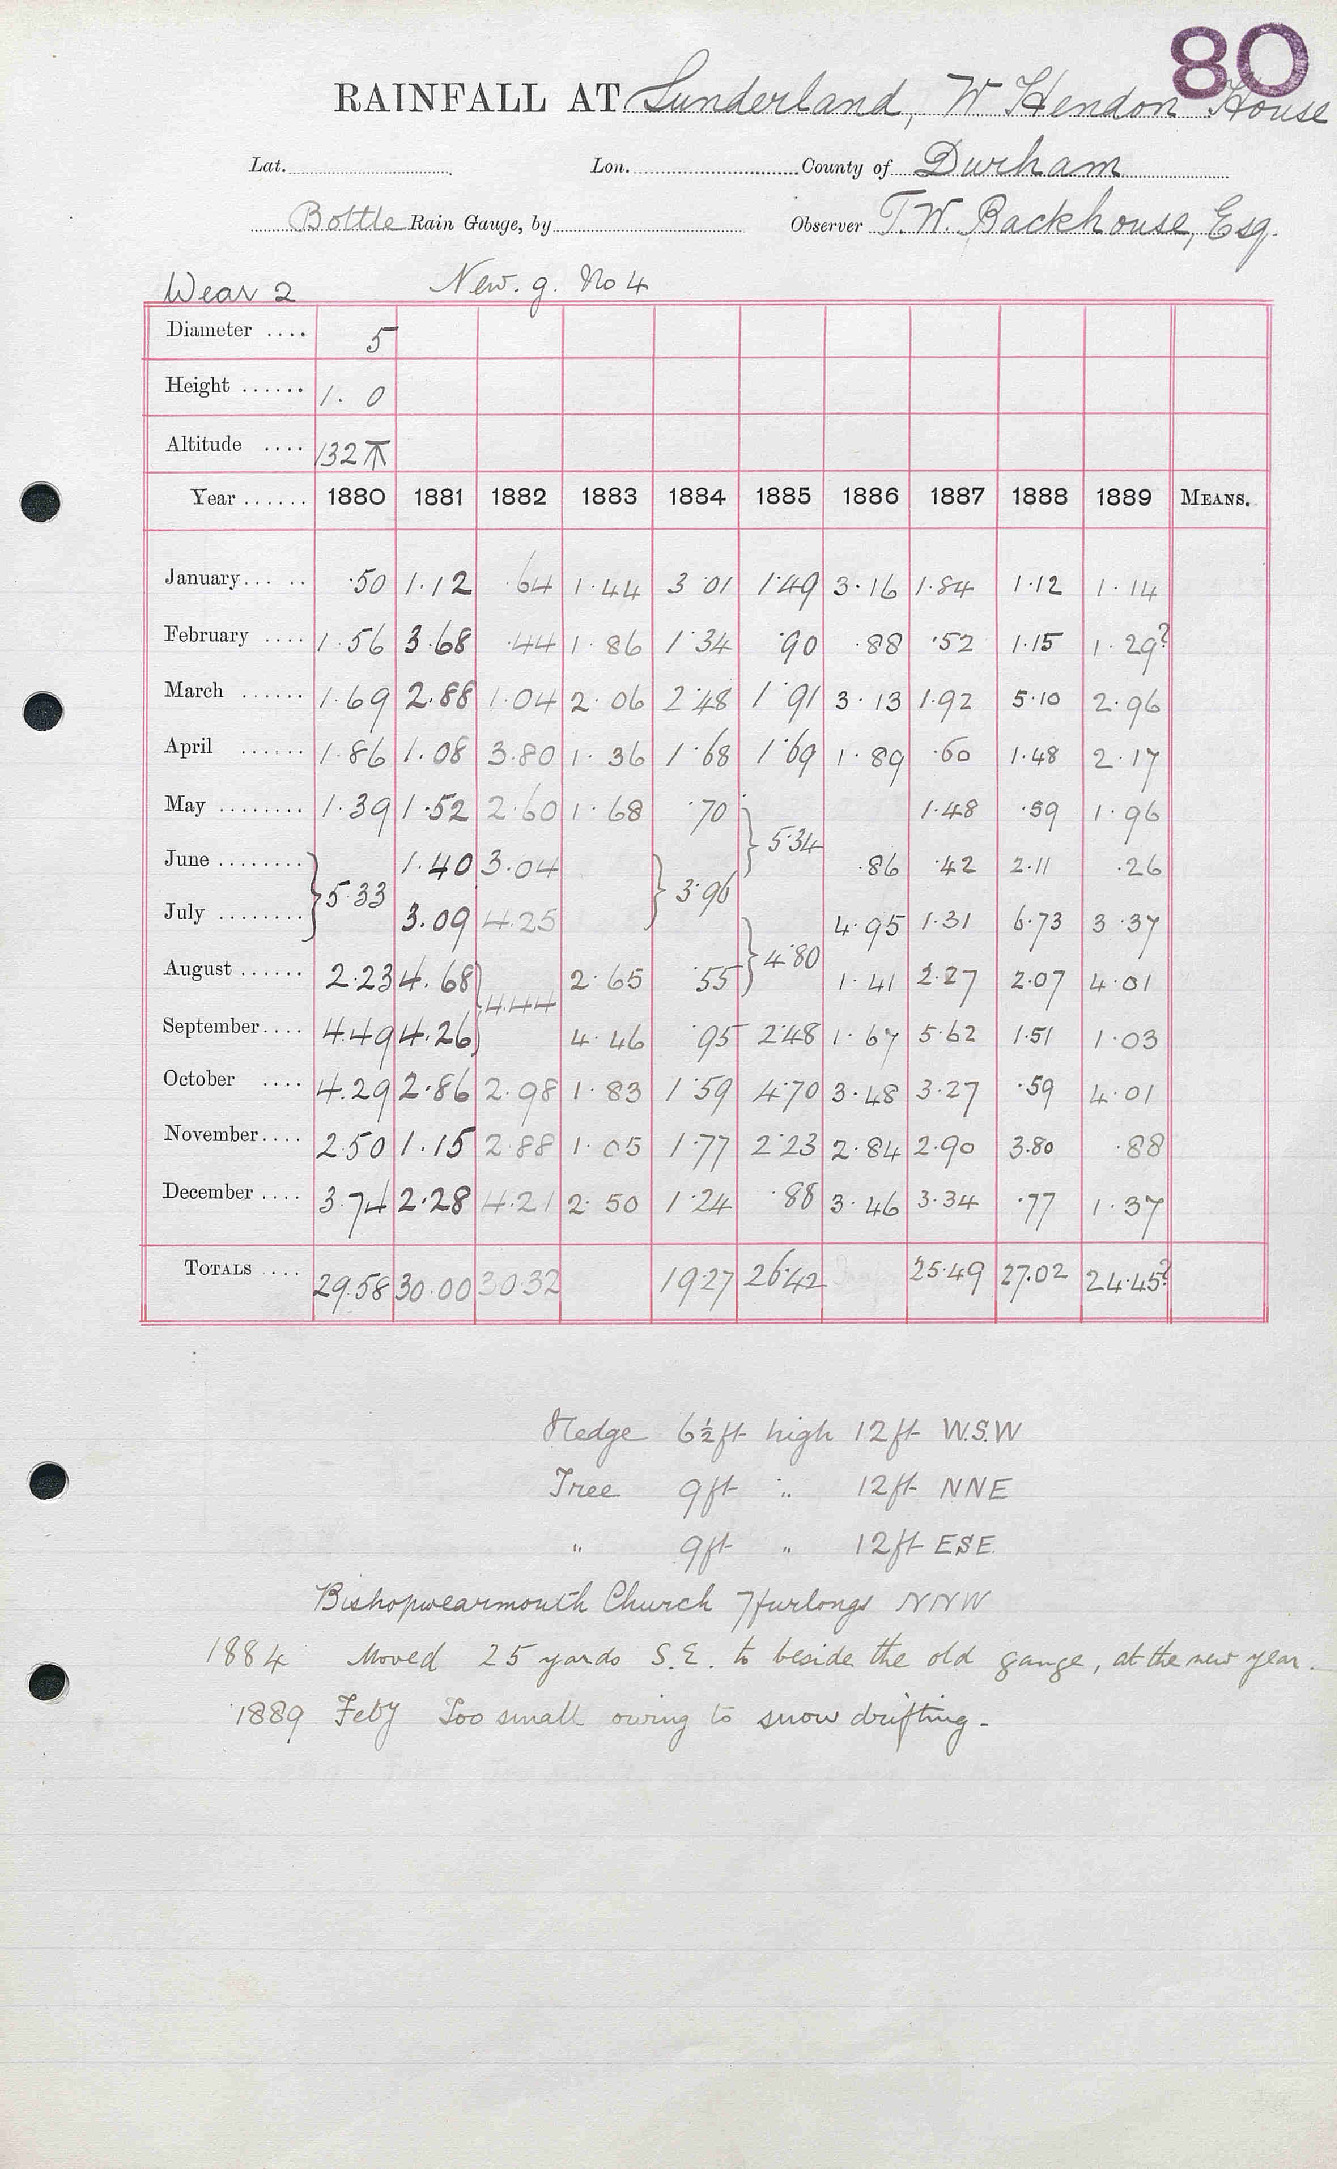 80
RAINFALL AT Sunderland, W. Hendon House
Lat. Lon. County of Durham
Bottle Rain Gauge, by Observer T.W. Backhouse, Esq.
Wear 2 New. g. No 4
Diameter .... 5
Height ...... 1. 0
Altitude .... 132
Year ...... 1880 1881 1882 1883 1884 1885 1886 1887 1888 1889 MEANS.
January... .. .50 1.12 .64 1.44 3.01 1.49 3.16 1.84 1.12 1.14
February .... 1.56 3.68 .44 1.86 1.34 .90 .88 .52 1.15 1.29?
March ...... 1.69 2.88 1.04 2.06 2.48 1.91 3.13 1.92 5.10 2.96
April ...... 1.86 1.08 3.80 1.36 1.68 1.69 1.89 .60 1.48 2.17
May ........ 1.39 1.52 2.60 1.68 .70 1.48 .59 1.96
5.34
June ........ 1.40 3.04 .86 .42 2.11 .26
5.33 3.96
July ........ 3.09 4.25 4.95 1.31 6.73 3.37
4.80
August ...... 2.23 4.68 2.65 .55 1.41 2.27 2.07 4.01
4.44
September.... 4.49 4.26 4.46 .95 2.48 1.67 5.62 1.51 1.03
October .... 4.29 2.86 2.98 1.83 1.59 4.70 3.48 3.27 .59 4.01
November.... 2.50 1.15 2.88 1.05 1.77 2.23 2.84 2.90 3.80 .88
December .... 3.74 2.28 4.21 2.50 1.24 .88 3.46 3.34 .77 1.37
TOTALS .... 29.58 30.00 30.32 19.27 26.42 25.49 27.02 24.45?
Hedge 6½ft high 12ft W.S.W
Tree 9ft " 12ft NNE
" 9ft " 12ft ESE
Bishopwearmouth Church 7furlongs NNW
1884 Moved 25 yards S.E. to beside the old gauge, at the new year.
1889 Feby Too small owing to snow drifting.